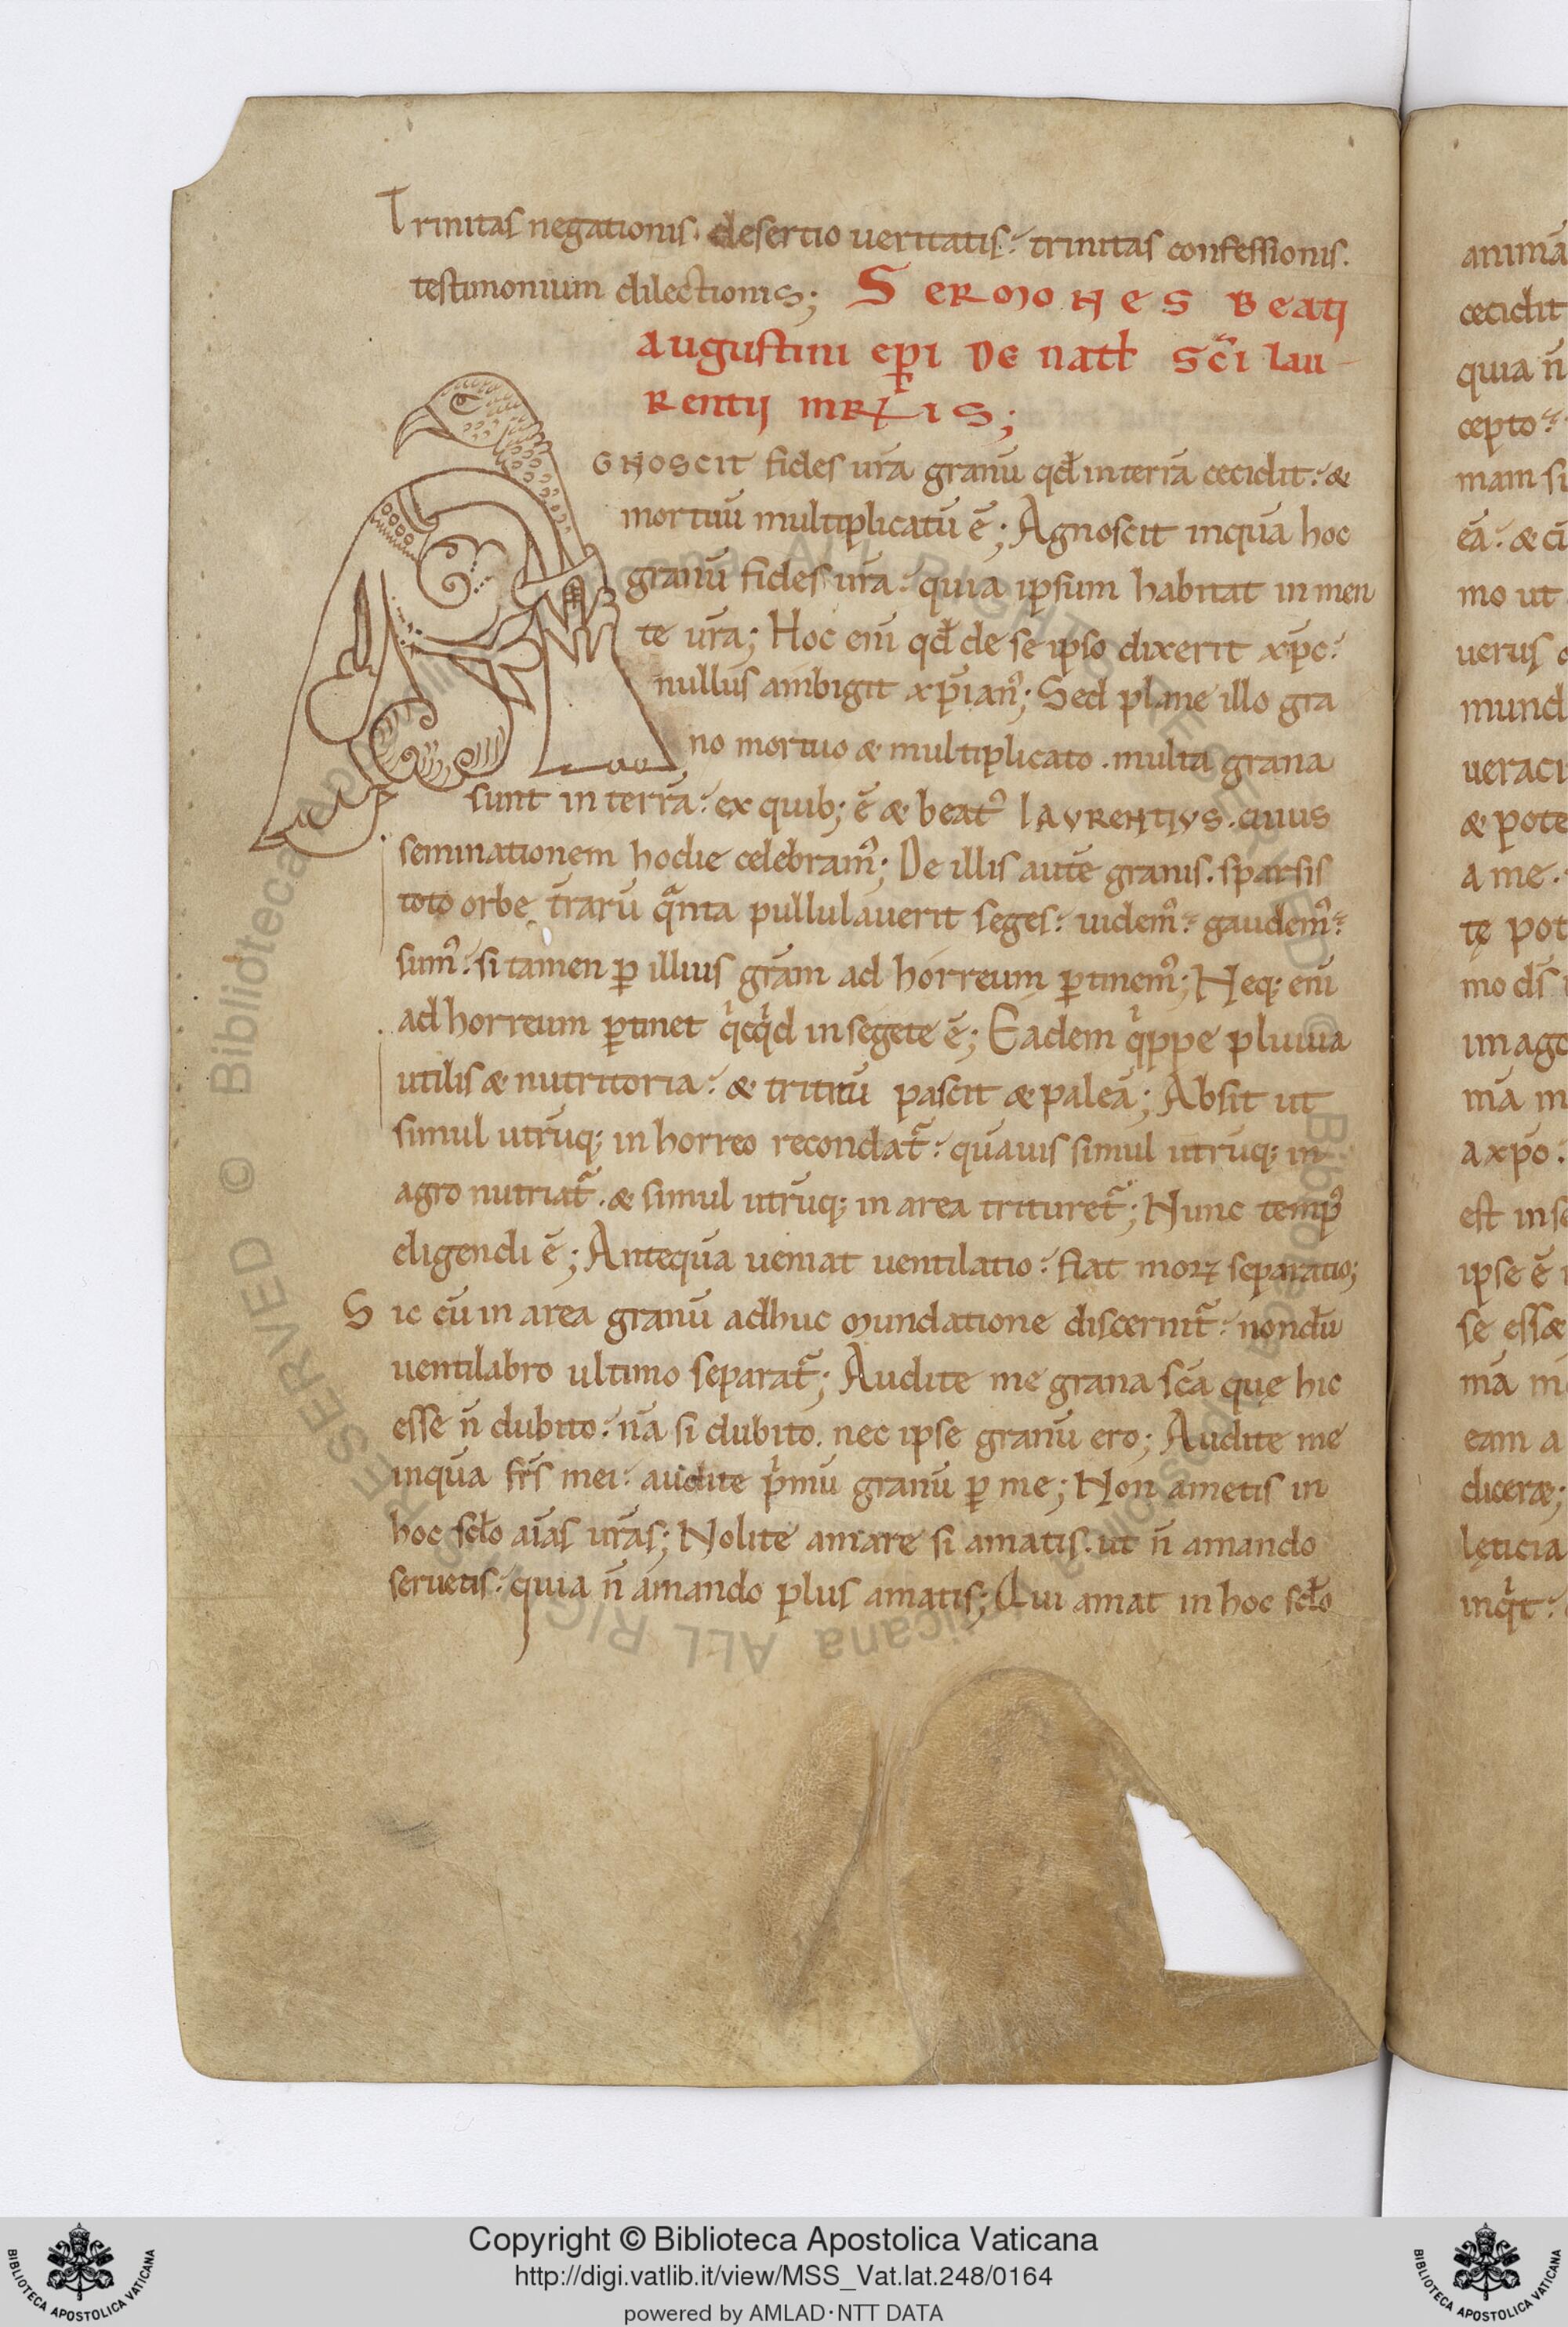 Trinitas negationis. desertio ueritatis. trinitas confessionis.
testimonium dilectionis; SERMONES BEATI
AUGUSTINI EP̅I DE NATL̅ SC̅I LAU-
RENTII MR̅IS;
GNOSCIT fides ur̅a granu̅ qd̅ in terra̅ cecidit. &
mortuu̅ multiplicatu̅ e̅; Agnoscit inqua̅ hoc
granu̅ fides ur̅a. quia ipsum habitat in men
te ur̅a; Hoc eni̅ qd̅ de se ipso dixerit xp̅c.
nullus ambigit xp̅ianꝰ; Sed plane illo gra
no mortuo & multiplicato. multa grana
sunt in terra̅. ex quib; e̅ & beatꝰ LAVRENTIVS. cuius
seminationem hodie celebramꝰ; De illis aute̅ granis. sparsis
toto orbe t̅raru̅ qᵃnta pullulauerit seges. uidemꝰ. gaudemꝰ.
sumꝰ. si tamen ꝑ illius gr̅am ad horreum ꝑtinemꝰ; Neq; eni̅
ad horreum ꝑtinet qⁱcqⁱd in segete e̅; Eadem qⁱppe pluuia
utilis & nutritoria. & triticu̅ pascit & palea̅; Absit ut
simul utru̅q; in horreo recondat᷑. qua̅uis simul utru̅q; in
agro nutriat᷑. & simul utru̅q; in area trituret᷑; Nunc tempꝰ
eligendi e̅; Antequa̅ ueniat uentilatio. fiat moꝝ separatio;
Sic cu̅ in area granu̅ adhuc mundatione discernit᷑. nondu̅
uentilabro ultimo separat᷑; Audite me grana sc̅a quę hic
esse n̅ dubito. na̅ si dubito. nec ipse granu̅ ero; Audite me
inqua̅ fr̅s mei. audite pⁱmu̅ granu̅ ꝑ me; Non ametis in
hoc scl̅o ai̅as ur̅as; Nolite amare si amatis. ut n̅ amando
seruetis. quia n̅ amando plus amatis; Qui amat in hoc scl̅o
anima̅
cecidit
quia n̅
cepto
mam si
ea̅. & cu̅
mo ut
uerus
mund
ueraci
& pote
a me.
tę pot
mo ds̅
imago
ma̅ m
a xp̅o.
est in se
ipse e̅
se ess&
ma̅
eam a
dicer&;
lęticia
inqⁱt.
Copyright © Biblioteca Apostolica Vaticana
http://digi.vatlib.it/view/MSS_Vat.lat.248/0164
powered by AMLAD·NTT DATA
BIBLIOTECA APOSTOLICA VATICANA
BIBLIOTECA APOSTOLICA VATICANA